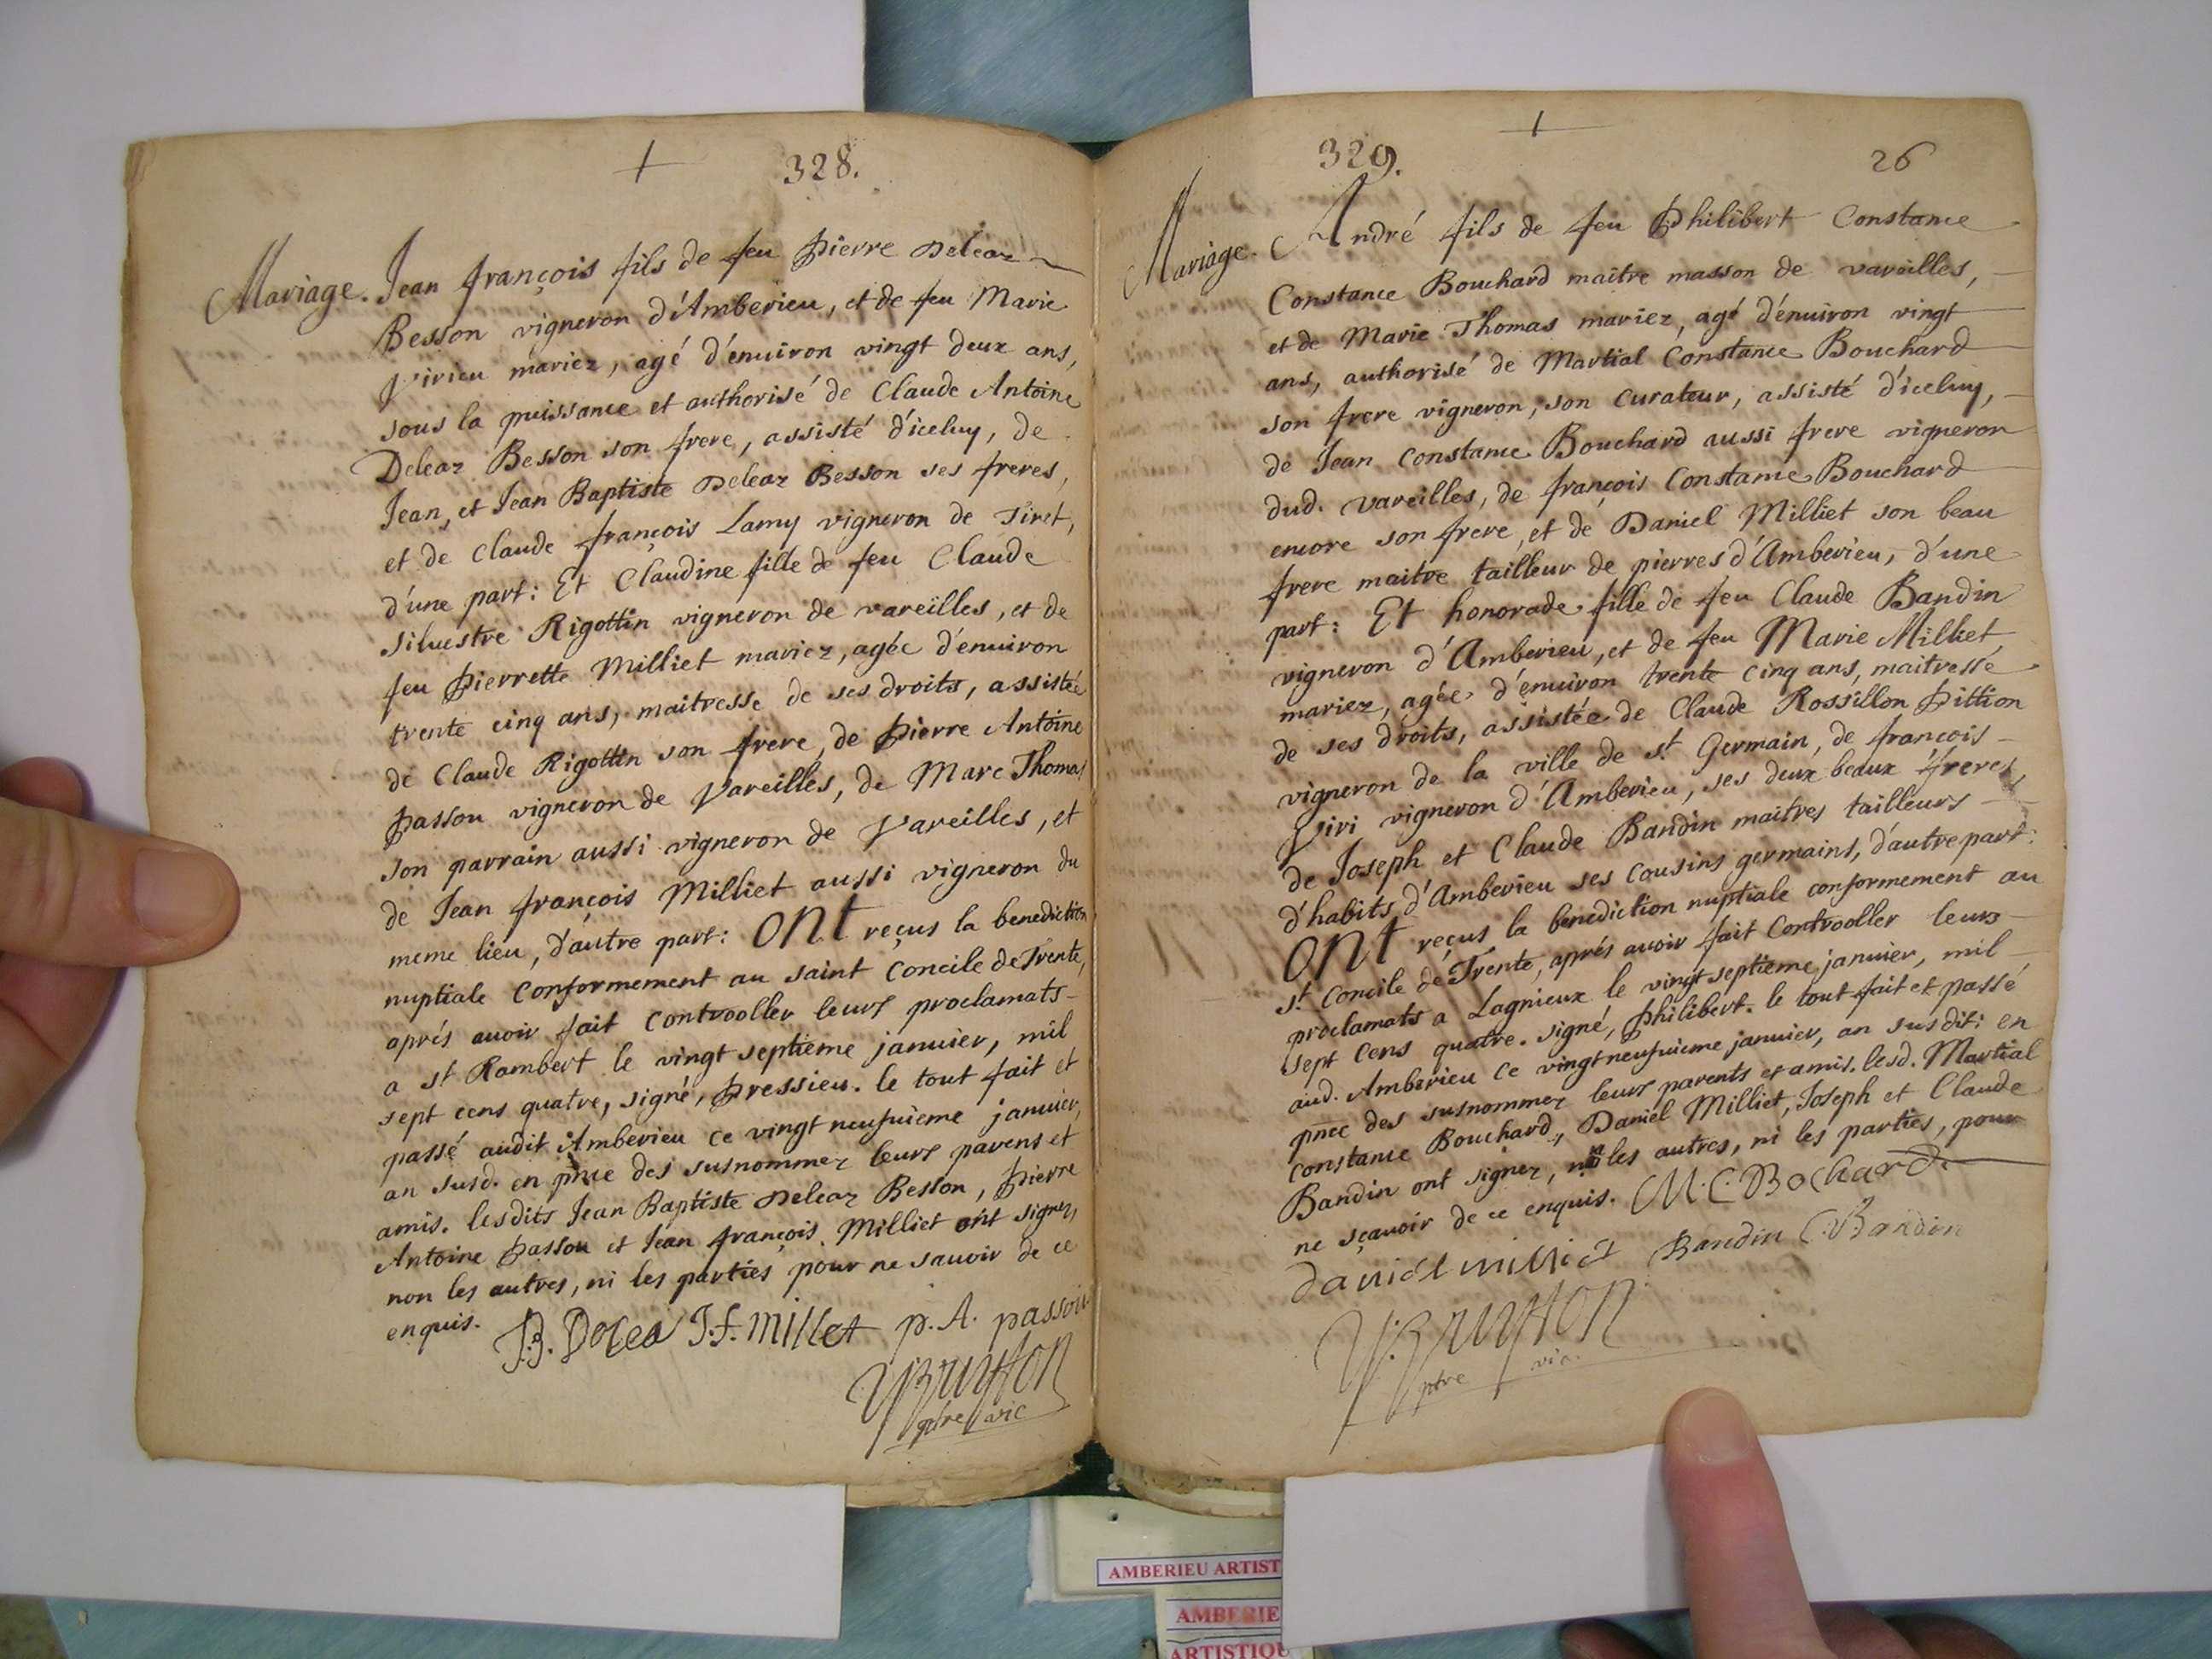 328.
Mariage. Jean françois fils de feu Pierre Deleaz
Besson vigneron d'Amberieu, et de feu Marie
Virieu mariez, agé d'enuiron vingt deux ans,
sous la puissance et authorisé de Claude Antoine
Deleaz Besson son frere, assisté d'iceluy, de
Jean, et Jean Baptiste Deleaz Besson ses freres,
et de Claude françois Lamy vigneron de Tiret,
d'une part: Et Claudine fille de feu Claude
siluestre Rigottin vigneron de vareilles, et de
feu Pierrette Milliet mariez, agée d'enuiron
trente cinq ans, maitresse de ses droits, assistée
de Claude Rigottin son frere, de Pierre Antoine
Passou vigneron de Vareilles, de Marc Thomas
son parrain aussi vigneron de Vareilles, et
de Jean françois Milliet aussi vigneron du
meme lieu, d'autre part: ONt reçus la benediction
nuptiale conformement au saint Concile de Trente,
aprés auoir fait controoller leurs proclamats
a st Rambert le vingt septieme januier, mil
sept cens quatre, signé, Pressieu. le tout fait et
passé audit Amberieu ce vingt neufuieme januier,
an susd. en pnce des susnommez leurs parens et
amis. lesdits Jean Baptiste Deleaz Besson, Pierre
Antoine Passou et Jean françois Milliet ont signez,
non les autres, ni les parties pour ne sauoir de ce
enquis. J.B. Dolea J.f. millet p.A. passou
Bruyson
ptre vic
329.
26
Mariage. André fils de feu Philibert Constance
Constance Bouchard maitre masson de vareilles,
et de Marie Thomas mariez, agé d'enuiron vingt
ans, authorisé de Martial Constance Bouchard
son frere vigneron, son curateur, assisté d'iceluy,
de Jean Constance Bouchard aussi frere vigneron
dud. vareilles, de françois Constance Bouchard
encore son frere, et de Daniel Milliet son beau
frere maitre tailleur de pierres d'Amberieu, d'une
part: Et honorade fille de feu Claude Bandin
vigneron d'Amberieu, et de feu Marie Milliet
mariez, agée d'enuiron trente cinq ans, maitresse
de ses droits, assistée de Claude Rossillon Pittion
vigneron de la ville de st. Germain, de françois
Viri vigneron d'Amberieu, ses deux beaux freres,
de Joseph et Claude Bandin maitres tailleurs
d'habits d'Amberieu ses cousins germains, d'autre part:
ONt reçus la benediction nuptiale conformement au
st. Concile de Trente, aprés auoir fait Controoller leurs
proclamats a Lagnieux le vingt septieme januier, mil
sept Cens quatre. signé, Philibert. le tout fait et passé
aud. Amberieu ce vingt neufuieme januier, an susdit: en
pnce des susnommez leurs parents et amis. lesd. Martial
Constance Bouchard, Daniel Milliet, Joseph et Claude
Bandin ont signez, non les autres, ni les parties, pour
ne sçauoir de ce enquis. M.C. Bochard.
daniel milliet Bandin C. Bandin
Bruyson
ptre vic.
AMBERIEU ARTIST
AMBERIE
ARTISTIQU